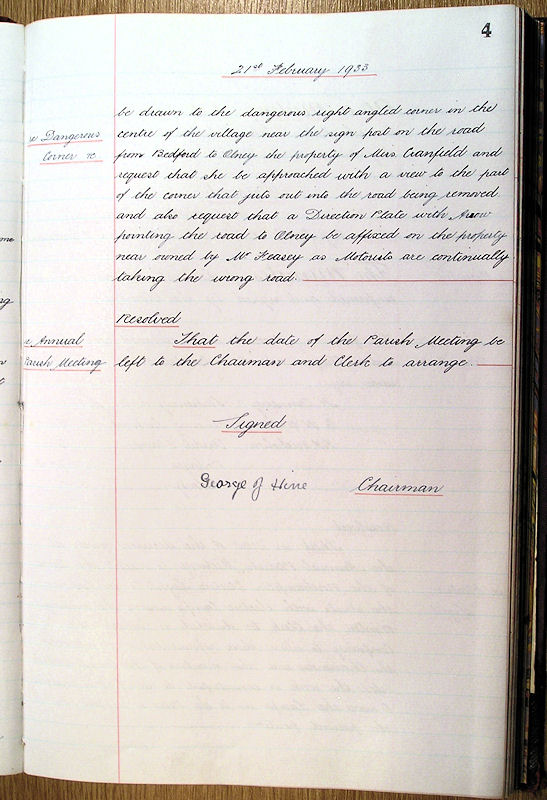 4
21st February 1933
be drawn to the dangerous right angled corner in the
re Dangerous
Corner &c
centre of the village near the sign post on the road
from Bedford to Olney the property of Mrs Cranfield and
request that she be approached with a view to the part
of the corner that juts out into the road being removed
and also request that a Direction Plate with Arrow
pointing the road to Olney be affixed on the property
near owned by Mr Feasey as Motorists are continually
taking the wrong road.
Resolved
Annual
Parish Meeting
That the date of the Parish Meeting be
left to the Chairman and Clerk to arrange.
Signed
George Hine Chairman